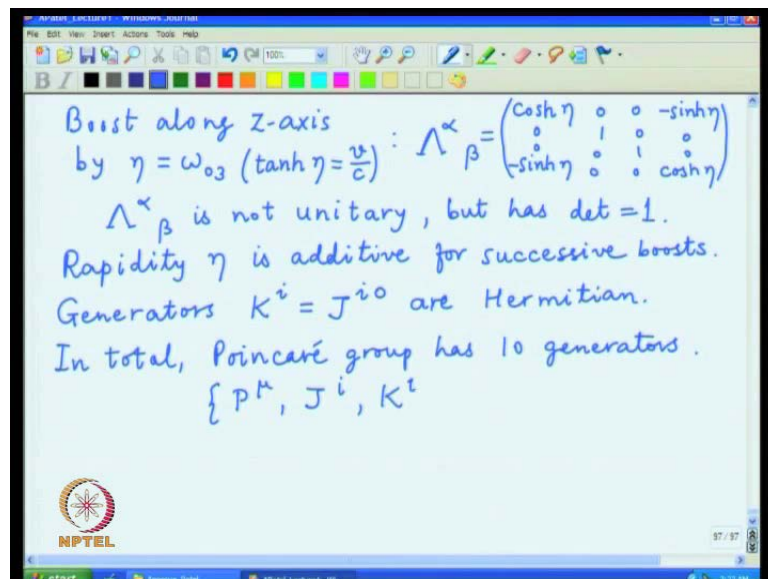 APatel_Lecture1 - Windows Journal
File Edit View Insert Actions Tools Help
100%
B I
Boost along z-axis
by η = ω₀₃ (tanh η = v/c) : Λ^α_β = (cosh η 0 0 -sinh η
0 1 0 0
0 0 1 0
-sinh η 0 0 cosh η)
Λ^α_β is not unitary, but has det = 1.
Rapidity η is additive for successive boosts.
Generators K^i = J^{i0} are Hermitian.
In total, Poincaré group has 10 generators.
{P^μ, J^i, K^i
NPTEL
97 / 97
start